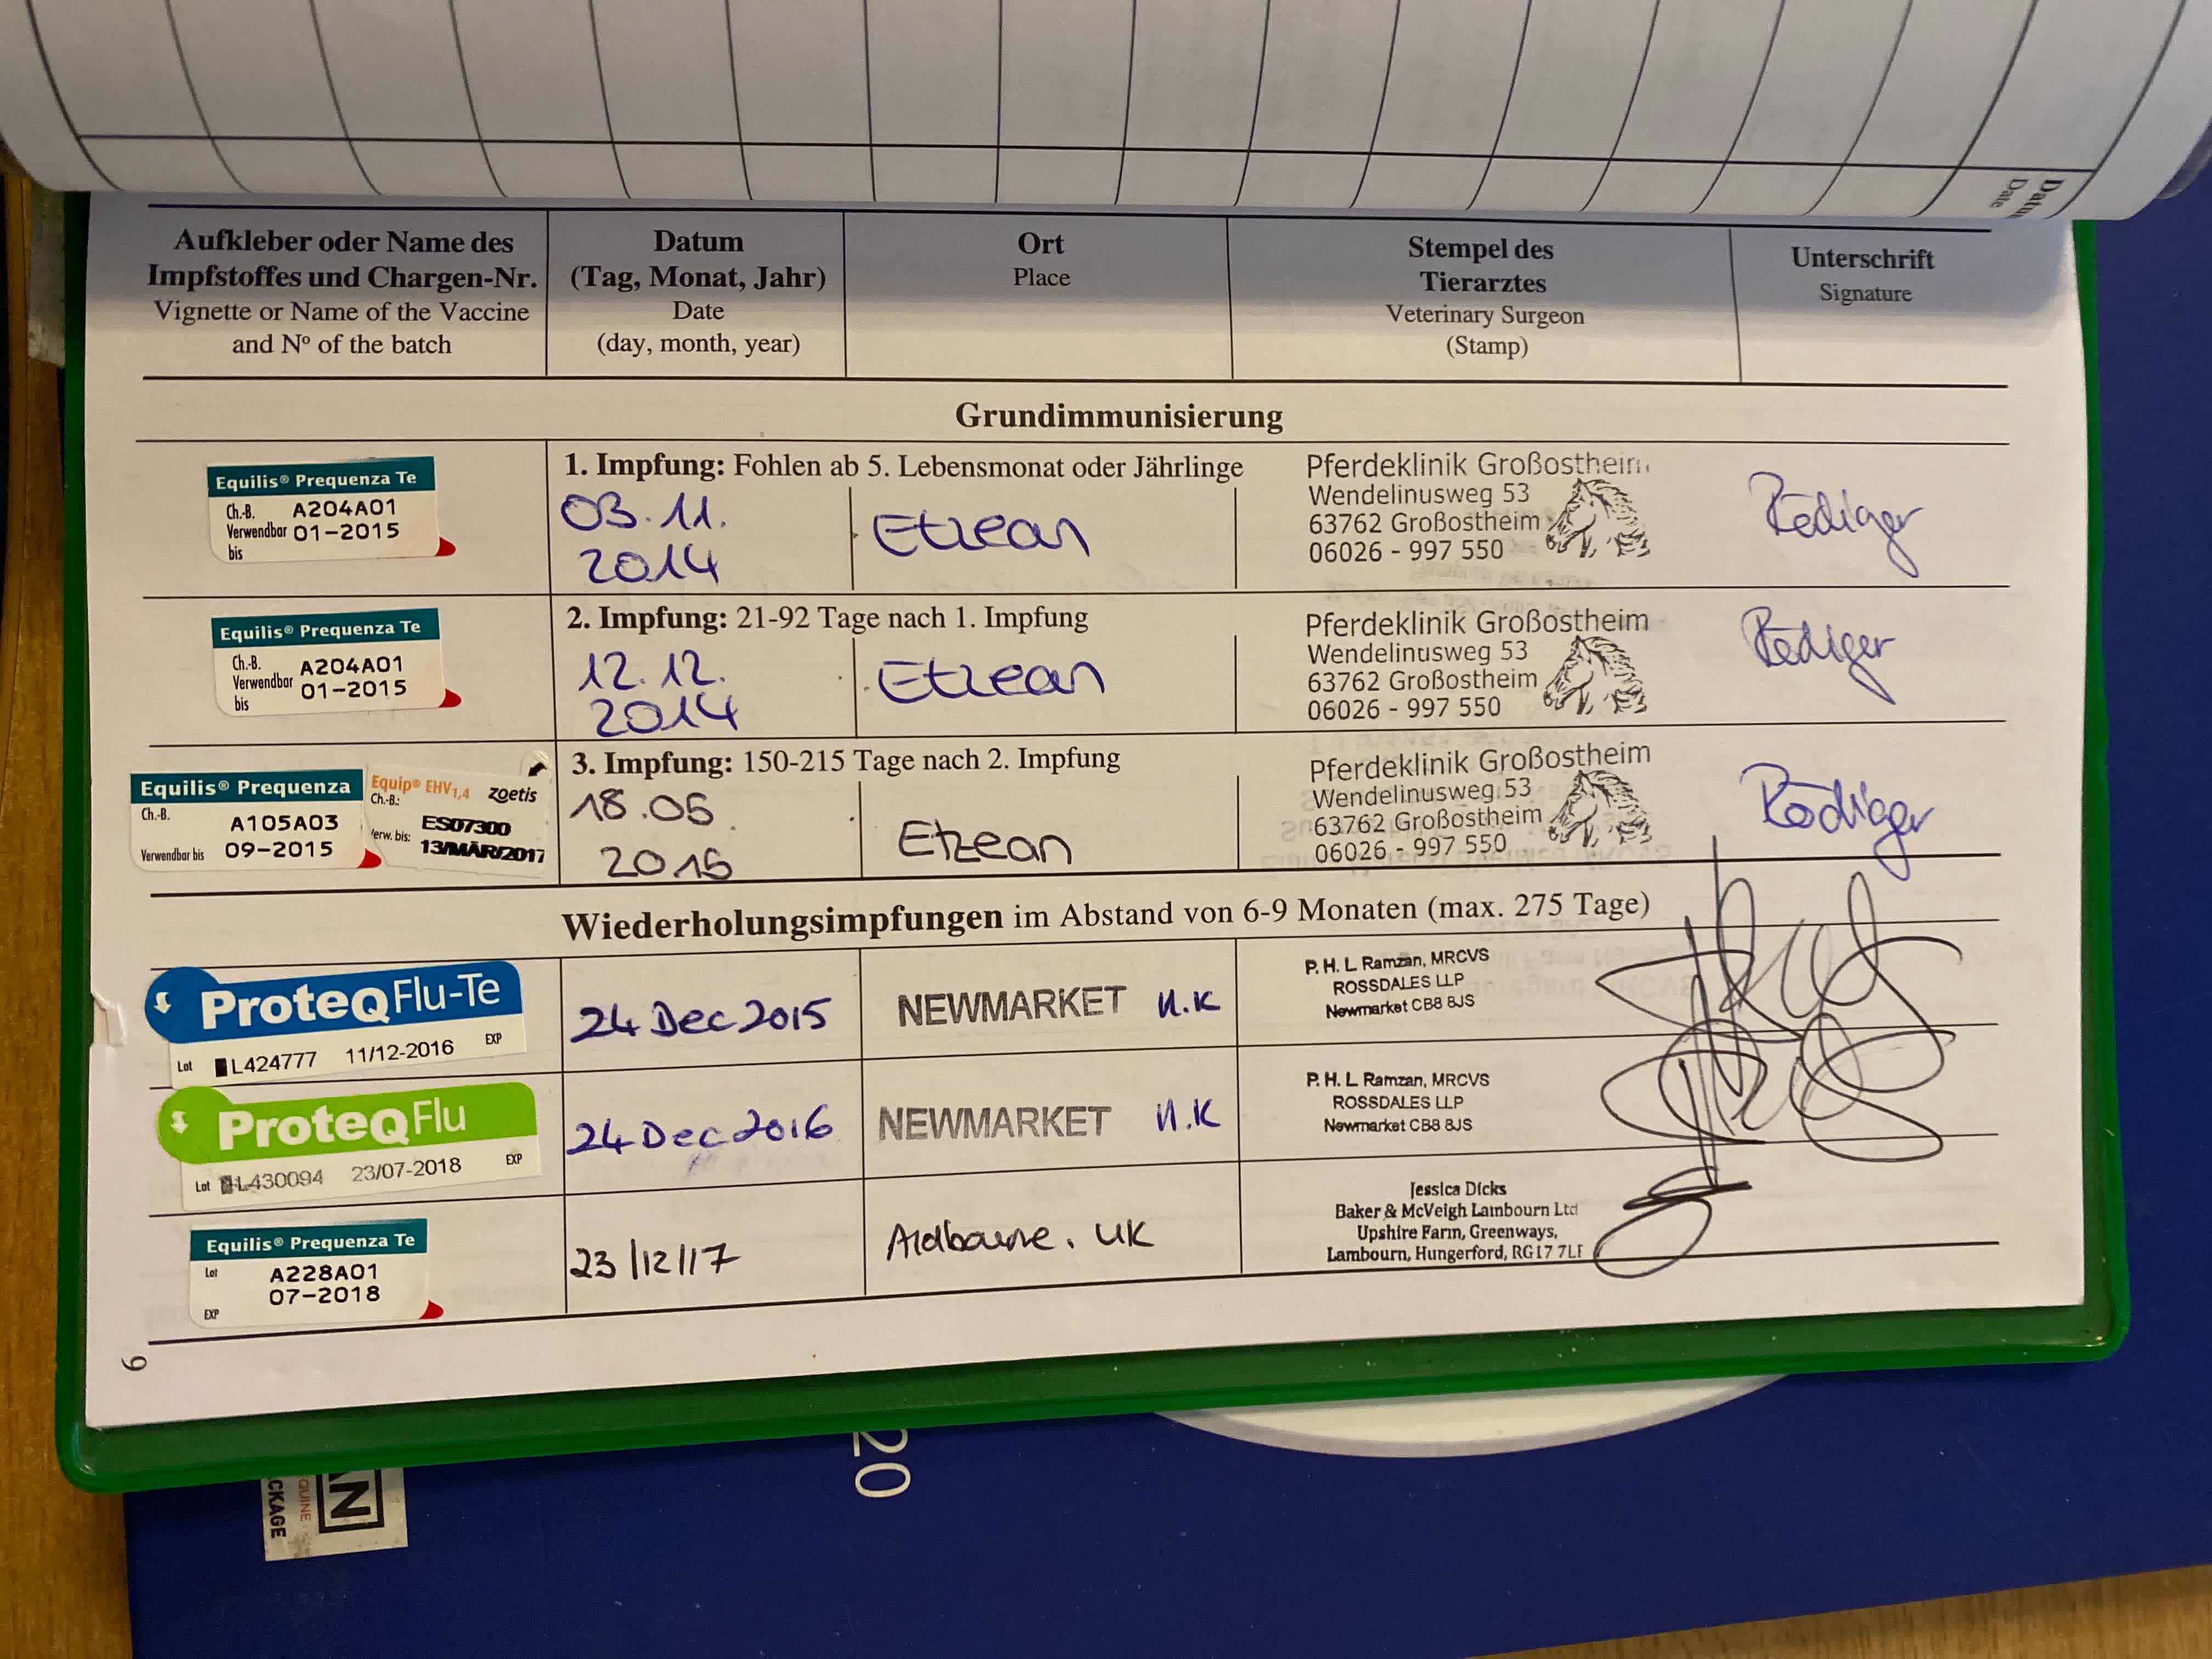 Datum
Date
Aufkleber oder Name des
Impfstoffes und Chargen-Nr.
Vignette or Name of the Vaccine
and Nº of the batch
Datum
(Tag, Monat, Jahr)
Date
(day, month, year)
Ort
Place
Stempel des
Tierarztes
Veterinary Surgeon
(Stamp)
Unterschrift
Signature
Grundimmunisierung
Equilis® Prequenza Te
Ch.-B. A204A01
Verwendbar 01-2015
bis
1. Impfung: Fohlen ab 5. Lebensmonat oder Jährlinge
03.11.
2014
Etzean
Pferdeklinik Großostheim
Wendelinusweg 53
63762 Großostheim
06026 - 997 550
Rödiger
Equilis® Prequenza Te
Ch.-B. A204A01
Verwendbar 01-2015
bis
2. Impfung: 21-92 Tage nach 1. Impfung
12.12.
2014
Etzean
Pferdeklinik Großostheim
Wendelinusweg 53
63762 Großostheim
06026 - 997 550
Rödiger
Equilis® Prequenza
Ch.-B.
A105A03
Verwendbar bis 09-2015
Equip® EHV1,4 zoetis
Ch.-B.:
ES07300
verw. bis: 13/MÄR/2017
3. Impfung: 150-215 Tage nach 2. Impfung
18.05
2015
Etzean
Pferdeklinik Großostheim
Wendelinusweg 53
63762 Großostheim
06026 - 997 550
Rödiger
Wiederholungsimpfungen im Abstand von 6-9 Monaten (max. 275 Tage)
ProteqFlu-Te
Lot L424777 11/12-2016 EXP
24 Dec 2015
NEWMARKET U.K
P. H. L Ramzan, MRCVS
ROSSDALES LLP
Newmarket CB8 8JS
ProteqFlu
Lot L430094 23/07-2018 EXP
24 Dec 2016
NEWMARKET U.K
P. H. L Ramzan, MRCVS
ROSSDALES LLP
Newmarket CB8 8JS
Equilis® Prequenza Te
Lot A228A01
07-2018
EXP
23/12/17
Aldbourne, UK
Jessica Dicks
Baker & McVeigh Lambourn Ltd
Upshire Farm, Greenways,
Lambourn, Hungerford, RG17 7LF
9
20
AN
QUINE
CKAGE